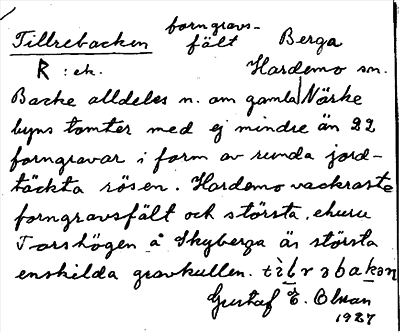 Tillrebacken forngravs-
fält Berga
R : ek. Hardemo sn.
Backe alldeles n. om gamla Närke
byns tomter med ej mindre än 22
forngravar i form av runda jord-
täckta rösen. Hardemo vackraste
forngravsfält och största, ehuru
Torshögen å Skyberga är största
enskilda gravkullen.
Gustaf E. Olsson
1927